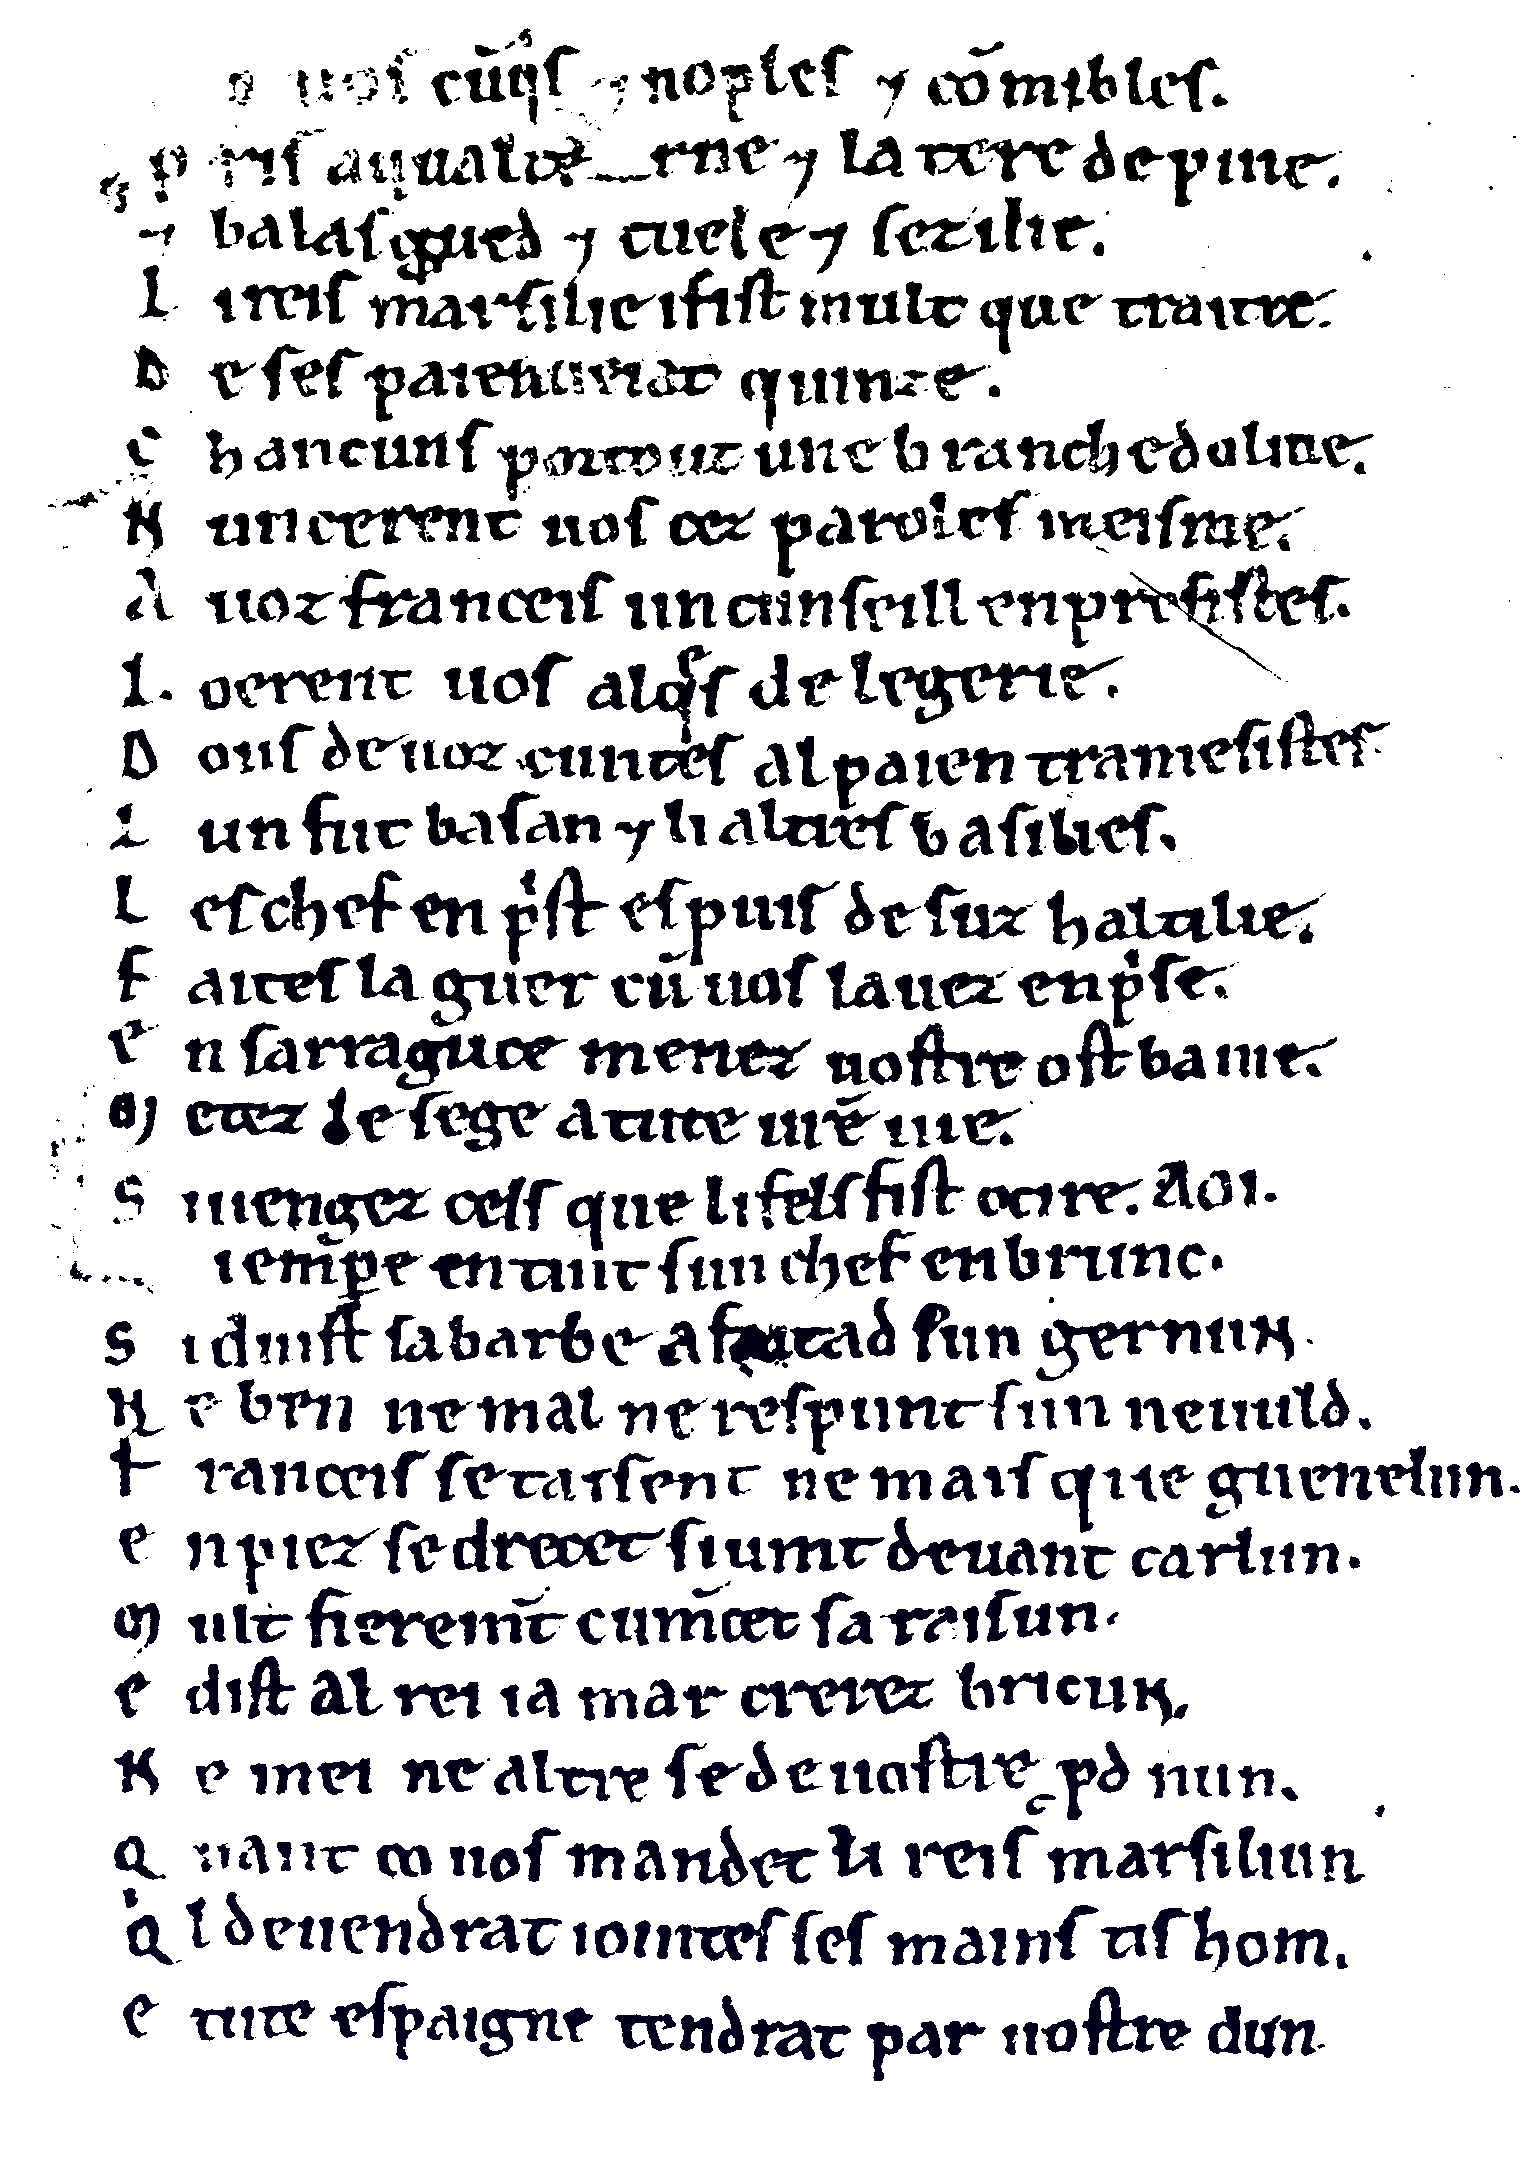 o uoſ cūqͥſ ⁊ noples ⁊ cōmibles.
P riſ aɥualtẽ rne ⁊ la tere de pine.
⁊ balaſgued ⁊ tuele ⁊ ſezilie.
L i reiſ marſilie i fiſt mult que traitre.
D e ſeſ paien ueiat quinze.
C hancunſ portout une branche doliue.
N uncerent uoſ cez paroleſ meiſme.
A uoz franceiſ un cunſeill en preſiſteſ.
L oerent uoſ alqͤſ de legerie.
D ouſ de uoz cunteſ al paien trameſiſteſ
L un fut baſan ⁊ li altreſ baſilieſ.
L eſ chef en pͥſt eſ puiſ deſuz haltilie.
F aiteſ la guer cū uoſ lauez enpͥſe.
E n ſarraguce menez uoſtre oſt banie.
M etez le ſege a tute ur̄e uie.
S i uengez celſ que li felſ fiſt ocire. AOI.
i em̄pe en tint ſun chef enbrunc.
S i duiſt ſa barbe afaitad ſun gernun.
N e ben ne mal ne reſpunt ſun neuuld.
F ranceiſ ſe taiſent ne maiſ que guenelun.
E n piez ſe drecet ſi uint deuant carlun.
M ult fierem̄t cum̄cet ſa raiſun.
E diſt al rei ia mar crerez bricun.
N e mei ne altre ſe de uoſtre ꝓd nun.
Q uant co uoſ mandet li reiſ marſiliun
Qͥ l deuendrat iointeſ ſeſ mainſ tiſ hom.
E tute eſpaigne tendrat par uoſtre dun